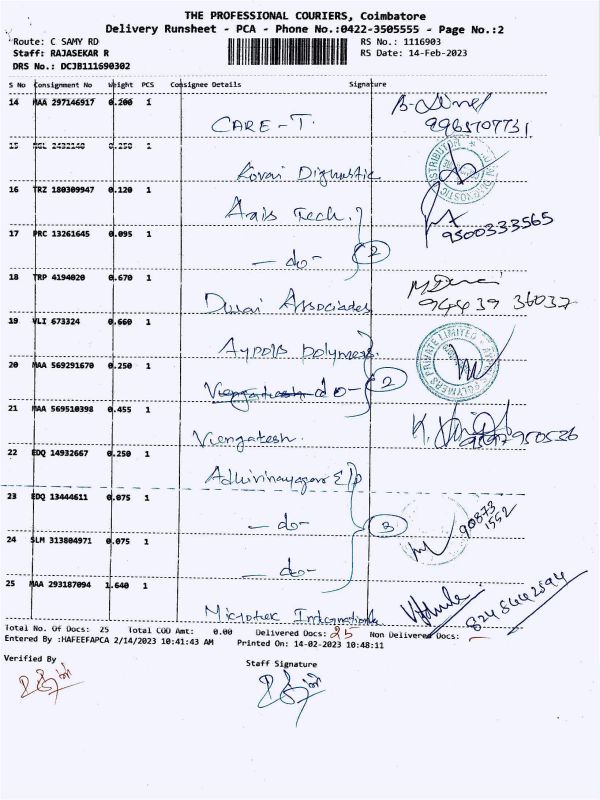 THE PROFESSIONAL COURIERS, Coimbatore
Delivery Runsheet - PCA - Phone No.:0422-3505555 - Page No.:2
Route: C SAMY RD RS No.: 1116903
Staff: RAJASEKAR R RS Date: 14-Feb-2023
DRS No.: DCJB111690302
S No Consignment No Weight PCS Consignee Details Signature
14 MAA 297146917 0.200 1
CARE-T. 9965707731
15 2432148 0.250 1
Kovai Dignostic
16 TRZ 180309947 0.120 1
Tech. 9500333565
17 PRC 13261645 0.095 1
-do- 2
18 TRP 4194020 0.670 1
Durai Associades 94439 36037
19 VLI 673324 0.660 1
polymers. POLYMERS PRIVATE LIMITED
20 MAA 569291670 0.250 1
do- 2
21 MAA 569510398 0.455 1
Viengatesh. K.
22 EDQ 14932667 0.250 1
23 EDQ 13444611 0.075 1
-do- 3 90873
1552
24 SLM 313804971 0.075 1
-do-
25 MAA 293187094 1.640 1
Microtek International
Total No. Of Docs: 25 Total COD Amt: 0.00 Delivered Docs: 25 Non Delivered Docs: -
Entered By :HAFEEFAPCA 2/14/2023 10:41:43 AM Printed On: 14-02-2023 10:48:11
Verified By Staff Signature